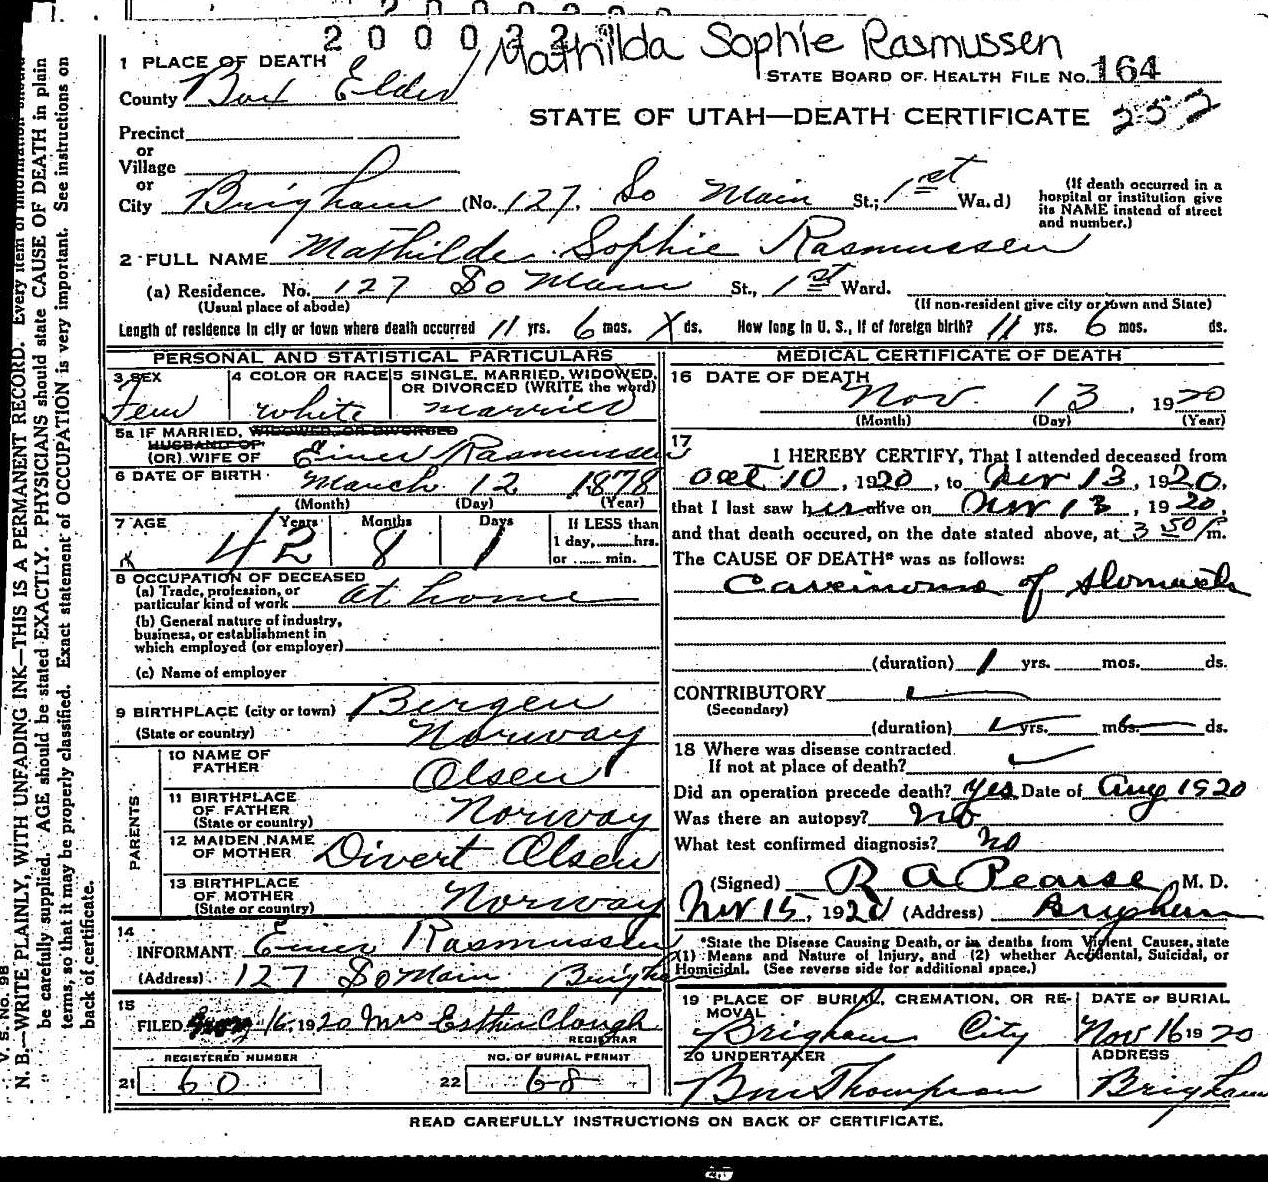 200032
Mathilda Sophie Rasmussen
STATE BOARD OF HEALTH FILE NO. 164
1 PLACE OF DEATH
County Box Elder
STATE OF UTAH—DEATH CERTIFICATE 252
Precinct
or
Village
or
City Brigham (No. 127. So Main St.; 1st Ward)
(If death occurred in a hospital or institution give its NAME instead of street and number.)
2 FULL NAME Mathilde Sophie Rasmussen
(a) Residence. No. 127 So Main St., 1st Ward.
(Usual place of abode) (If non-resident give city or town and State)
Length of residence in city or town where death occurred 11 yrs. 6 mos. X ds. How long in U. S., if of foreign birth? 11 yrs. 6 mos. ds.
PERSONAL AND STATISTICAL PARTICULARS
3 SEX Fem
4 COLOR OR RACE white
5 SINGLE, MARRIED, WIDOWED, OR DIVORCED (WRITE the word) married
5a IF MARRIED, WIDOWED, OR DIVORCED
HUSBAND OF
(OR) WIFE OF Einer Rasmussen
6 DATE OF BIRTH March 12 1878
(Month) (Day) (Year)
7 AGE 42 Years 8 Months 1 Days
If LESS than
1 day, hrs.
or min.
8 OCCUPATION OF DECEASED
(a) Trade, profession, or
particular kind of work at home
(b) General nature of industry,
business, or establishment in
which employed (or employer)
(c) Name of employer
9 BIRTHPLACE (city or town) Bergen
(State or country) Norway
PARENTS
10 NAME OF
FATHER Olsen
11 BIRTHPLACE
OF FATHER
(State or country) Norway
12 MAIDEN NAME
OF MOTHER Divert Olsen
13 BIRTHPLACE
OF MOTHER
(State or country) Norway
14
INFORMANT Einer Rasmussen
(Address) 127 So Main Brigham
15
FILED 16, 1920 Mrs Esther Clough
REGISTRAR
REGISTERED NUMBER NO. OF BURIAL PERMIT
21 60 22 68
MEDICAL CERTIFICATE OF DEATH
16 DATE OF DEATH
Nov. 13, 1920
(Month) (Day) (Year)
17
I HEREBY CERTIFY, That I attended deceased from
Oct 10, 1920, to Nov 13, 1920,
that I last saw her alive on Nov 13, 1920,
and that death occured, on the date stated above, at 3 50 P m.
The CAUSE OF DEATH* was as follows:
Carcinoma of Stomach
(duration) 1 yrs. mos. ds.
CONTRIBUTORY
(Secondary)
(duration) yrs. mos. ds.
18 Where was disease contracted
If not at place of death?
Did an operation precede death? Yes Date of Aug 1920
Was there an autopsy? No
What test confirmed diagnosis? no
(Signed) R A Pearse M. D.
Nov 15, 1920 (Address) Brigham
*State the Disease Causing Death, or in deaths from Violent Causes, state
(1) Means and Nature of Injury, and (2) whether Accidental, Suicidal, or
Homicidal. (See reverse side for additional space.)
19 PLACE OF BURIAL, CREMATION, OR REMOVAL
Brigham City
DATE OF BURIAL
Nov 16 1920
20 UNDERTAKER
Thompson
ADDRESS
Brigham
READ CAREFULLY INSTRUCTIONS ON BACK OF CERTIFICATE.
V. S. No. 98
N. B.—WRITE PLAINLY, WITH UNFADING INK—THIS IS A PERMANENT RECORD. Every item of information should
be carefully supplied. AGE should be stated EXACTLY. PHYSICIANS should state CAUSE OF DEATH in plain
terms, so that it may be properly classified. Exact statement of OCCUPATION is very important. See instructions on
back of certificate.